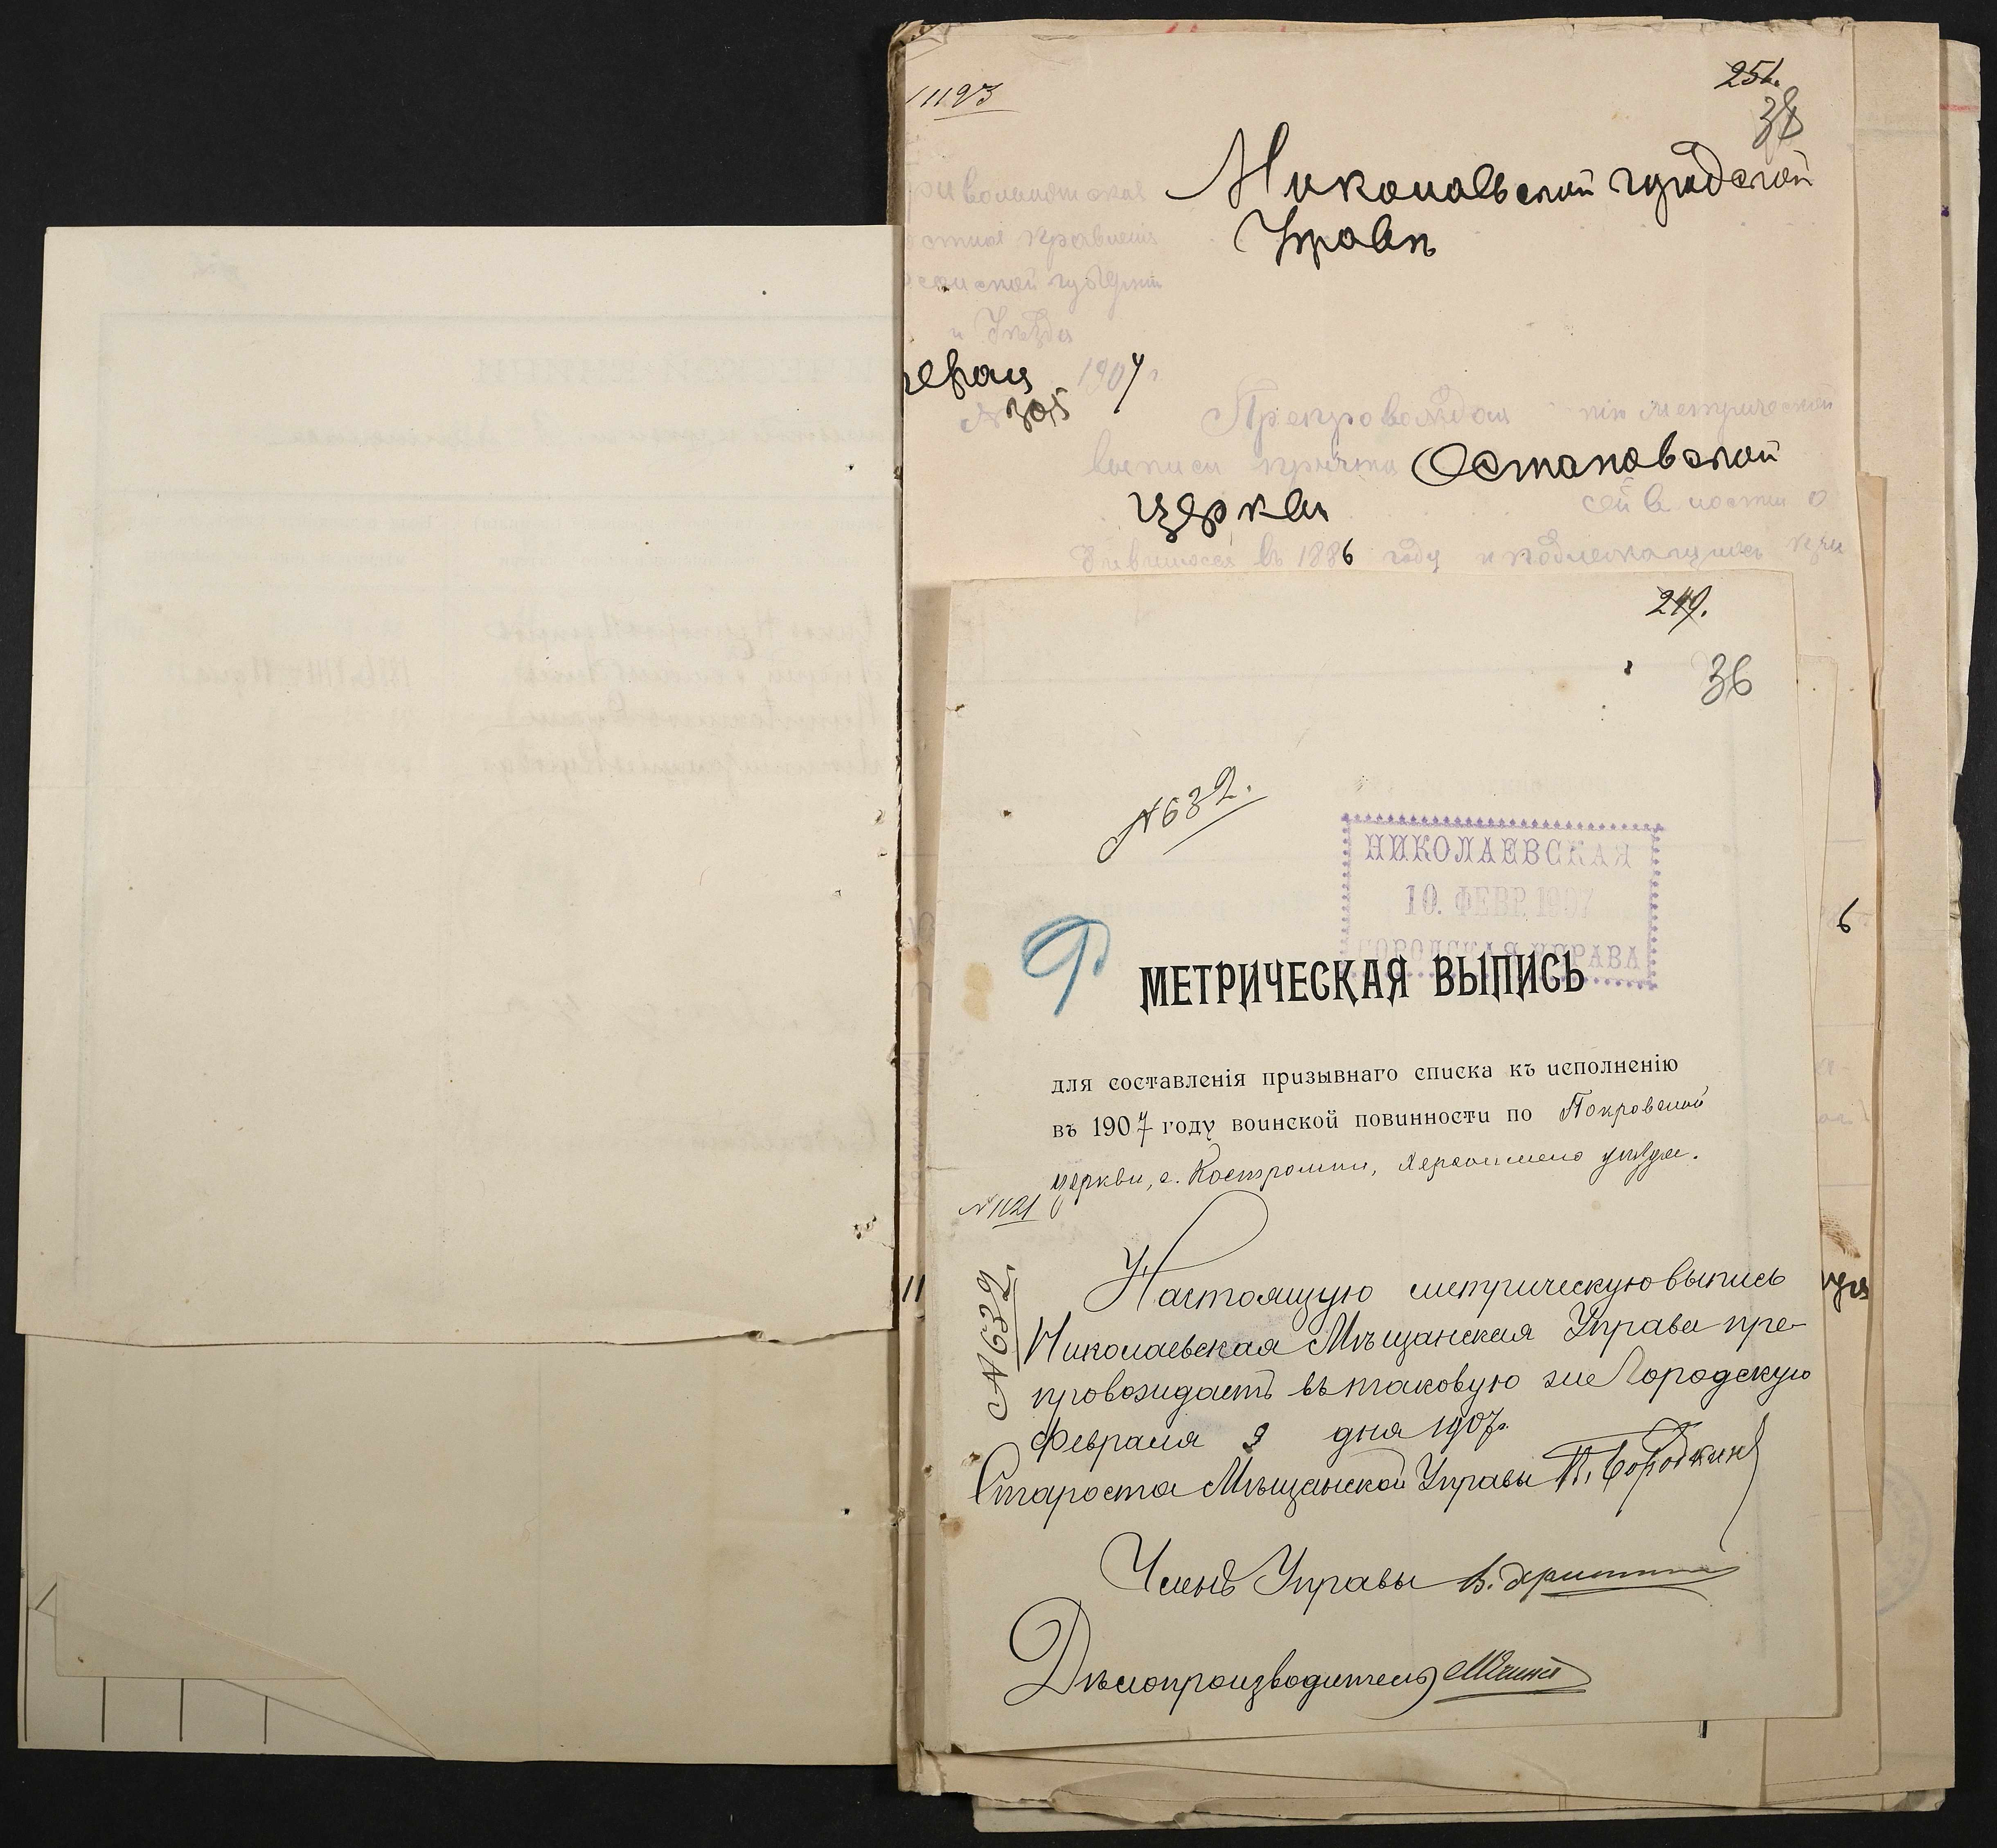 1193
251.
38
Николаевской городской
Управѣ
волостное правленіе
губерніи
и Уѣзда
1907 г
№ 305
Препровождая при метрической
выписи причта Остаповской
церкви
въ 1886 году и подлежащихъ
249.
36
№ 632.
НИКОЛАЕВСКАЯ
10. ФЕВР. 1907
ГОРОДСКАЯ УПРАВА
МЕТРИЧЕСКАЯ ВЫПИСЬ
для составленія призывнаго списка къ исполненію
въ 1907 году воинской повинности по Покровской
церкви, с. Костромки, Херсонскаго уѣзда.
№ 1121
№ 632.
Настоящую метрическую выпись
Николаевская Мѣщанская Управа пре-
провождаетъ въ таковую же Городскую
Февраля 9 дня 1907 г.
Староста Мѣщанской Управы П. Бородкинъ
Членъ Управы
Дѣлопроизводитель
6